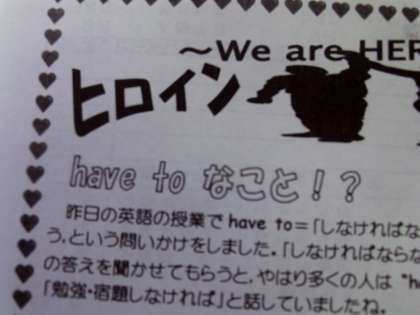 ～We are HER
ヒロイン
have to なこと！？
昨日の英語の授業で have to＝「しなければな
う，という問いかけをしました。「しなければならな
の答えを聞かせてもらうと，やはり多くの人は "ha
「勉強・宿題しなければ」と話していましたね。